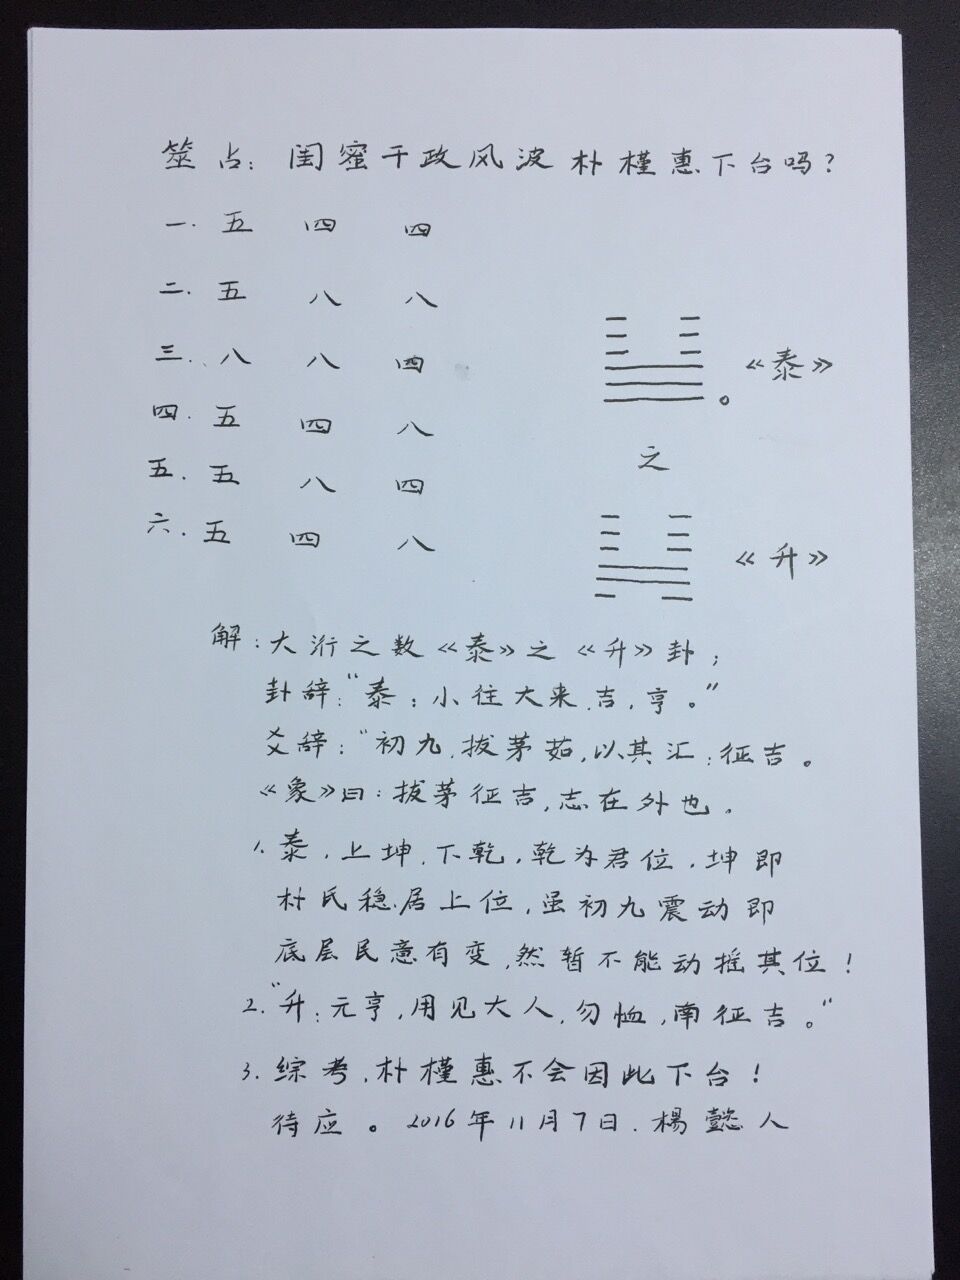 筮占：闺蜜干政风波朴槿惠下台吗？
一．五 四 四
二．五 八 八
三．八 八 四
四．五 四 八
五．五 八 四
六．五 四 八
《泰》
之
《升》
解：大洐之数《泰》之《升》卦；
卦辞：“泰：小往大来．吉，亨。”
爻辞：“初九，拔茅茹，以其汇；征吉。
《象》曰：拔茅征吉，志在外也。
1. 泰，上坤，下乾，乾为君位，坤即
朴氏稳居上位，虽初九震动即
底层民意有变，然暂不能动摇其位！
2.“升：元亨，用见大人，勿恤，南征吉。”
3. 综考，朴槿惠不会因此下台！
待应。2016年11月7日．楊懿人